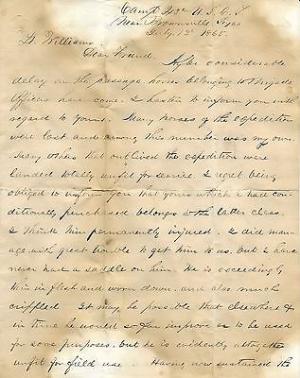 Camp 43d U.S.C.T.
Near Brownsville, Texas
July 13th 1865.
Lt. Williams
Dear Friend
After considerable
delay on the passage horses belonging to Brigade
Officers have come. I hasten to inform you with
regard to yours. Many horses of the expedition
were lost and among this number was my own.
Many others that outlived the expedition were
landed totally unfit for service. I regret being
obliged to inform you that yours which I had con-
ditionally purchased belongs to the latter class.
I think him permanently injured. I did man-
age with great trouble to get him to us, but I have
never had a saddle on him. He is exceedingly
thin in flesh and worn down, and also much
crippled. It may be possible that elsewhere &
in time he would so far improve as to be used
for some purposes, but he is evidently altogether
unfit for field use. Having now sustained the